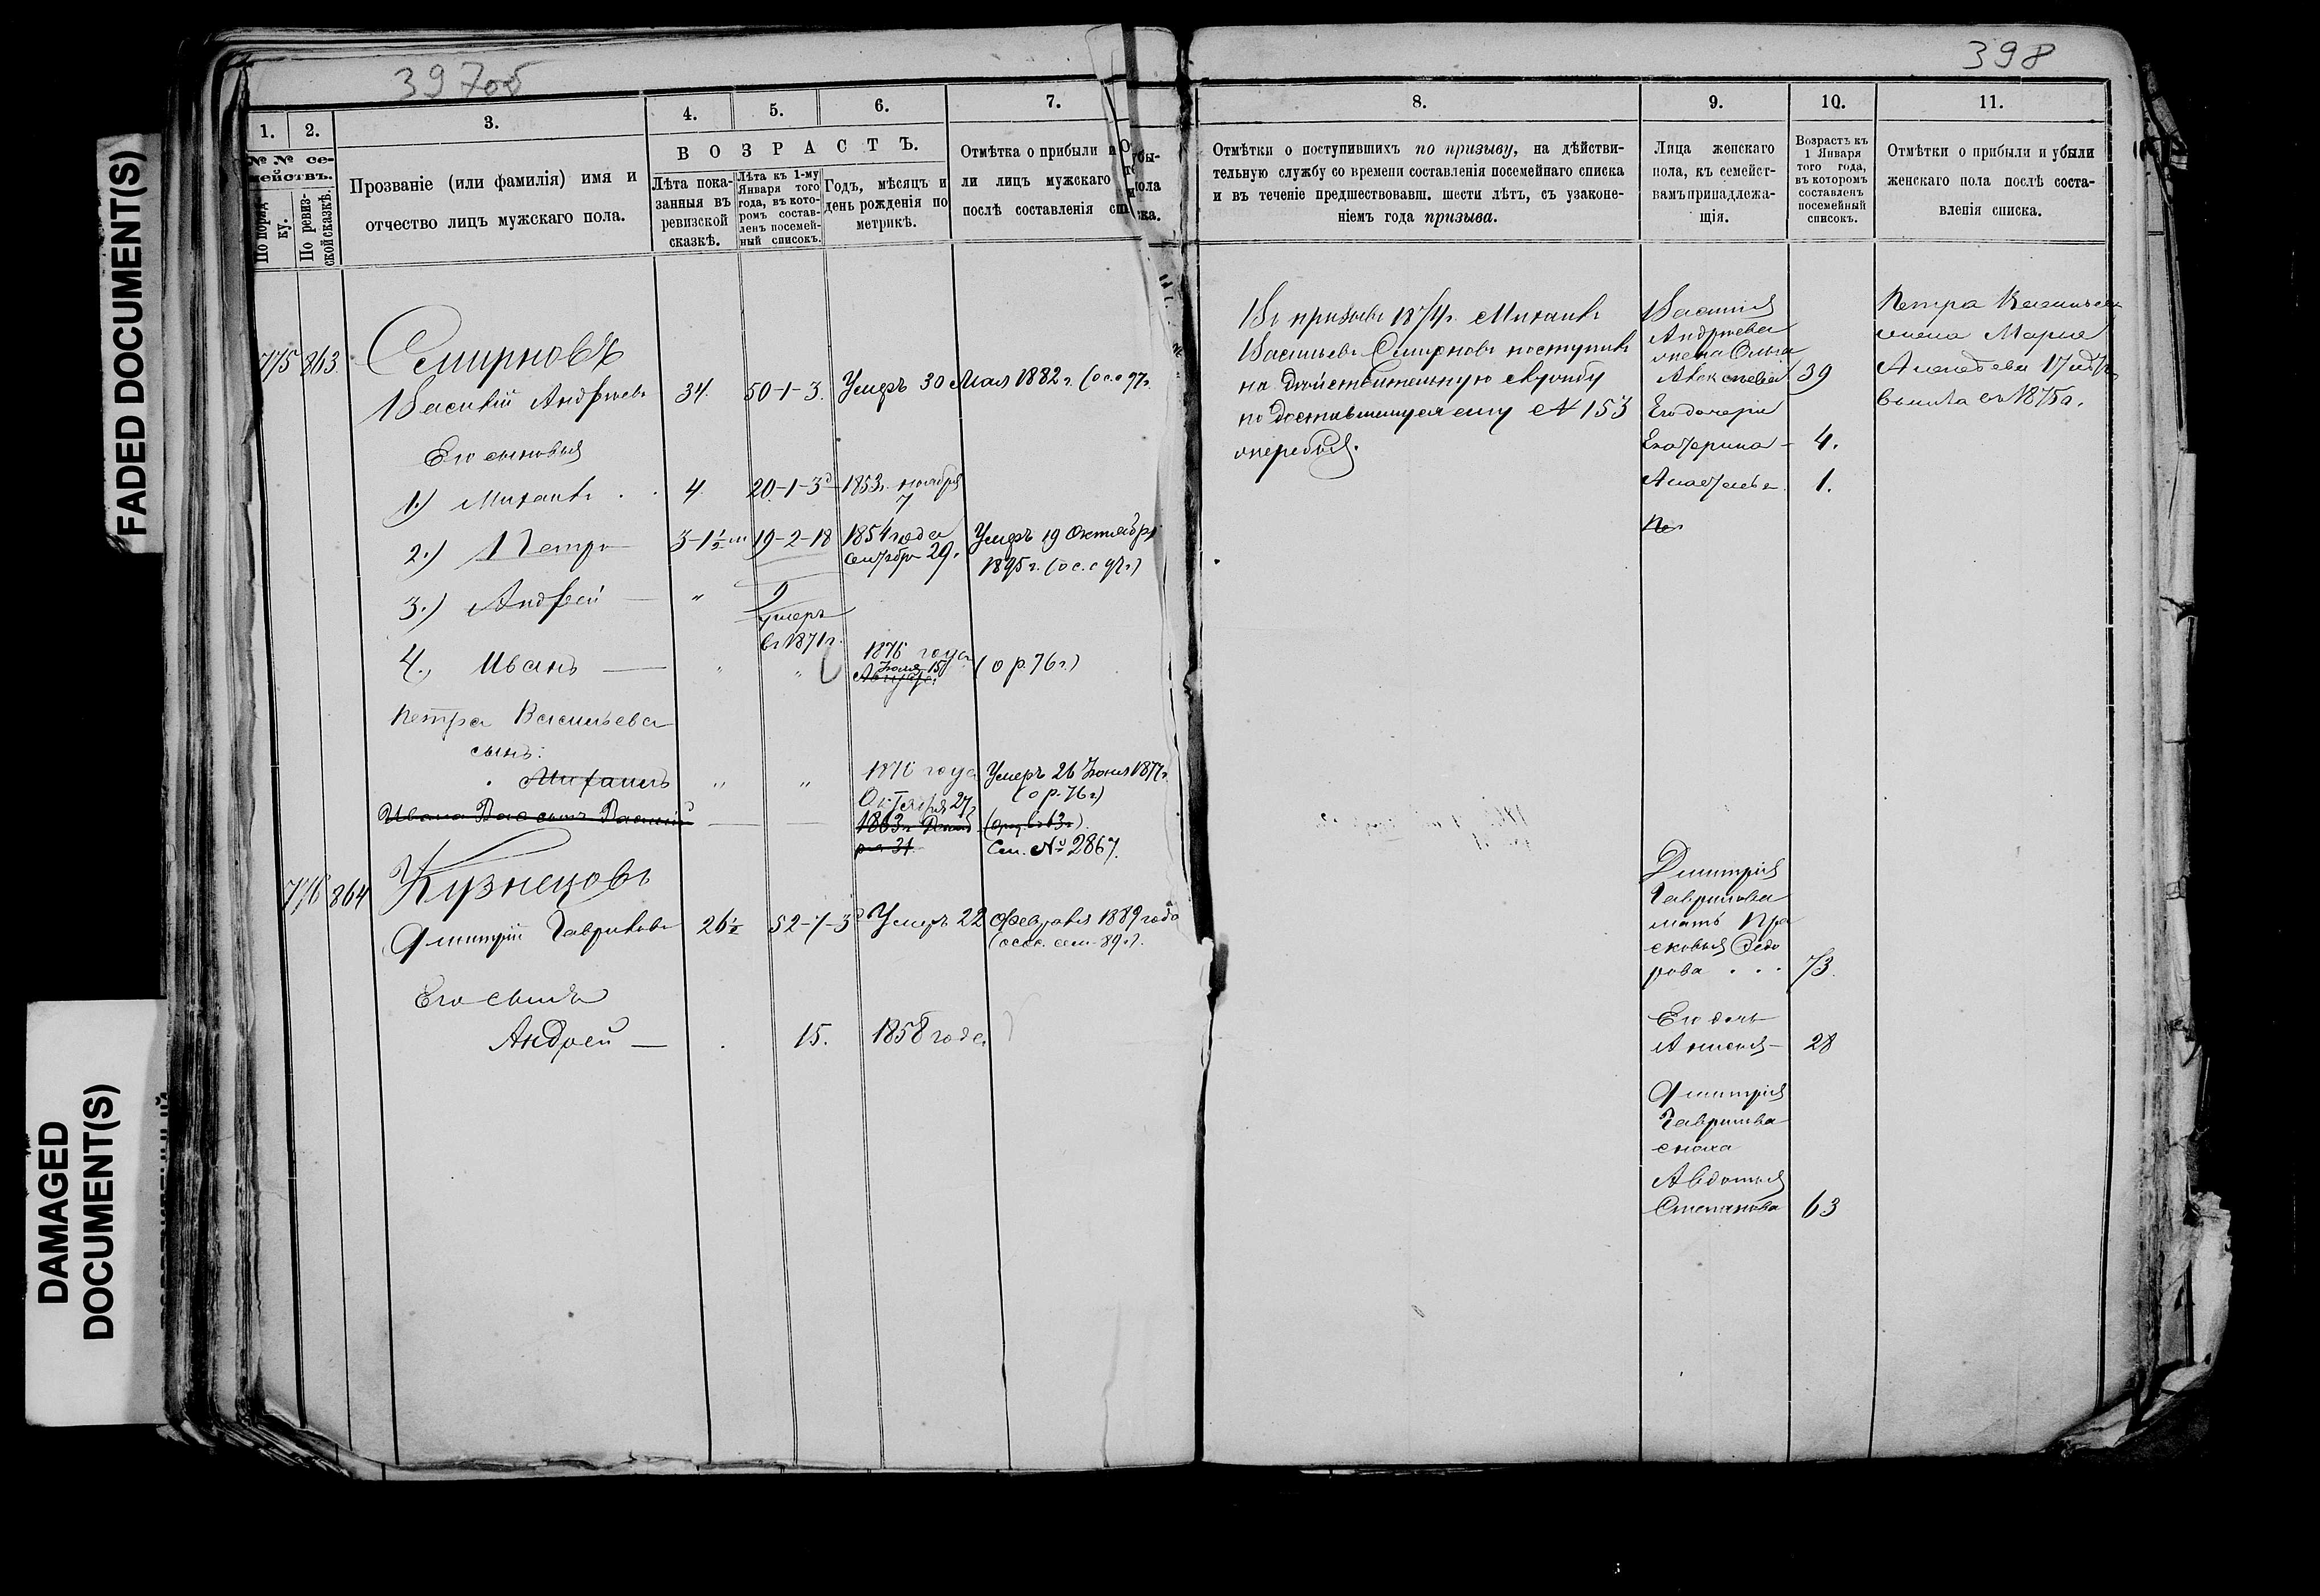 FADED DOCUMENT(S)
DAMAGED
DOCUMENT(S)
397об
1.
2.
3.
4.
5.
6.
7.
№ № се-
мействъ.
По поряд-
ку.
По ревиз-
ской сказкѣ.
Прозваніе (или фамилія) имя и
отчество лицъ мужскаго пола.
В О З Р А С Т Ъ.
Лѣта пока-
занныя въ
ревизской
сказкѣ.
Лѣта къ 1-му
Января того
года, въ кото-
ромъ состав-
ленъ посемей-
ный списокъ.
Годъ, мѣсяцъ и
день рожденія по
метрикѣ.
Отмѣтка о прибыли
ли лицъ мужскаго
послѣ составленія
775 863. Смирновъ
Василій Андреевъ 34. 50-1-3. Умеръ 30 Мая 1882 г.
Его сыновья
1.) Михаилъ 4. 20-1-3 1853г. ноября
7
2.) Петръ 3-1½ 19-2-18 1854 года Умеръ 19 Октября
сентября 29. 1895 г.
3.) Андрей — " 9
умеръ
въ 1871г.
4., Иванъ — " " 1876 года (о р. 76 г.)
Іюня 15
Августа
Петра Васильева
сынъ:
Михаилъ " " 1876 года Умеръ 26 Іюня 1877г.
Октября 27 (о р. 76 г)
Ивана Вас сынъ Василій — — 1863г.
31. См. № 2867.
776 864 Кузнецовъ
Дмитрій Гавриловъ 26½ 52-1-3 Умеръ 22 Февраля 1889 года
Его сынъ
Андрей — 15. 1858 года
398
8.
9.
10.
11.
Отмѣтки о поступившихъ по призыву, на дѣйстви-
тельную службу со времени составленія посемейнаго списка
и въ теченіе предшествовавш. шести лѣтъ, съ узаконе-
ніемъ года призыва.
Лица женскаго
пола, къ семейст-
вамъ принадлежа-
щія.
Возрастъ къ
1 Января
того года,
въ которомъ
составленъ
посемейный
списокъ.
Отмѣтки о прибыли и убыли
женскаго пола послѣ соста-
вленія списка.
Въ призывъ 1874г. Михаилъ
Васильевъ Смирновъ поступилъ
на дѣйствительную службу
по доставшемуся ему № 153
очередью.
Василія
Андреева
жена Ольга
Алексѣева 39
Его дочери
Екатерина - 4.
Анастасья 1.
Петра Васильева
жена Марья
въ 1875г.
Дмитрія
Гаврилова
мать Пра
сковья Федо
рова . . . 73.
Его дочь
Анисья - 28
Дмитрія
Гаврилова
сноха
Авдотья
Степанова 63